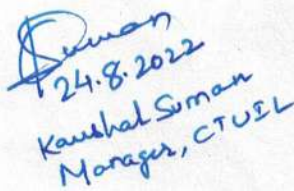 Suman
24.8.2022
Kaushal Suman
Manager, CTUIL